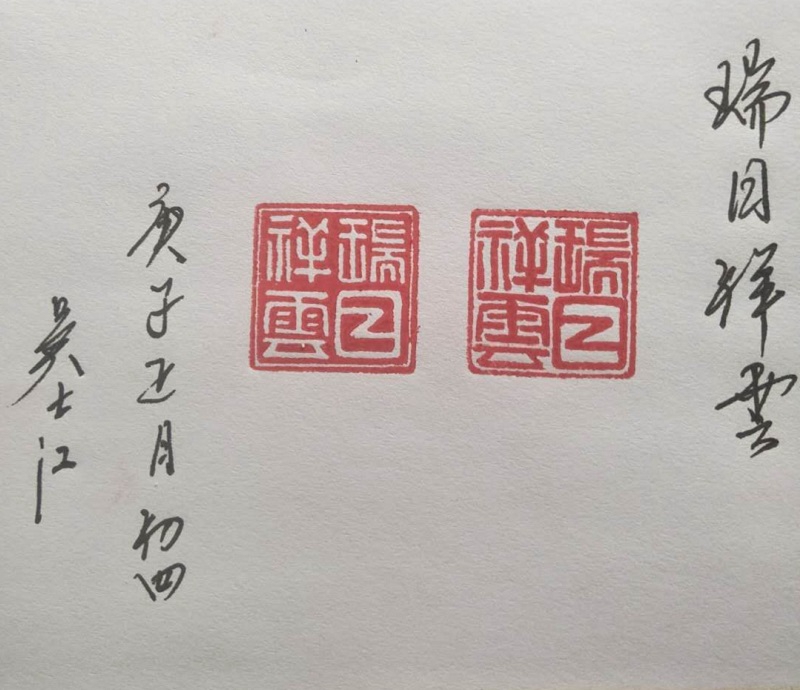 瑞日祥雲
瑞日祥雲
瑞日祥雲
庚子正月初四
吴士江